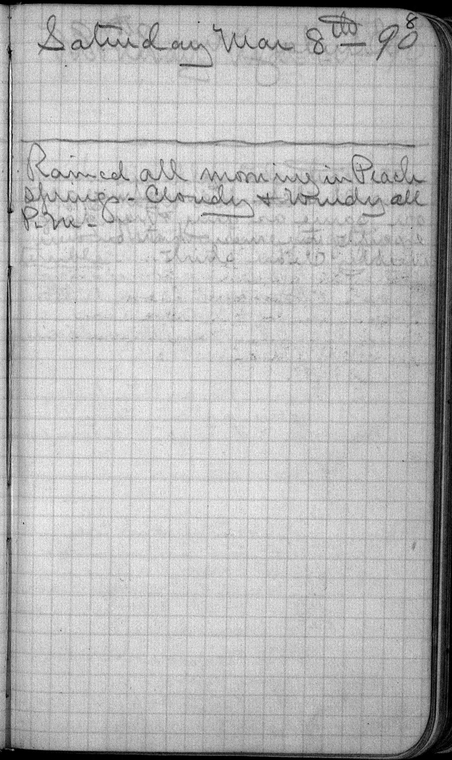 Saturday Mar 8th - 90
8
Rained all morning in Peach
Springs - Cloudy & Windy all
P.M. -